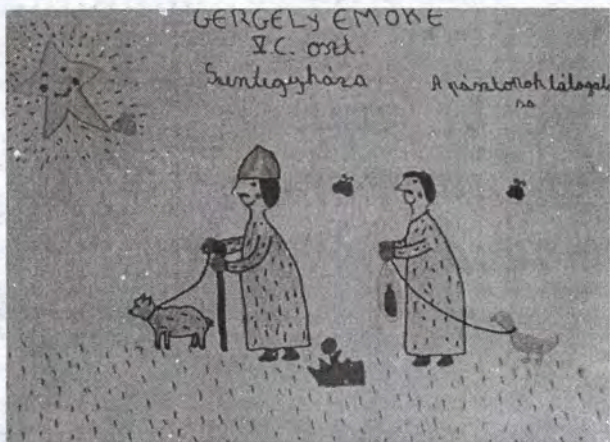 GERGELY EMŐKE
V.C. oszt.
Szentegyháza
A pásztorok látogatá
sa